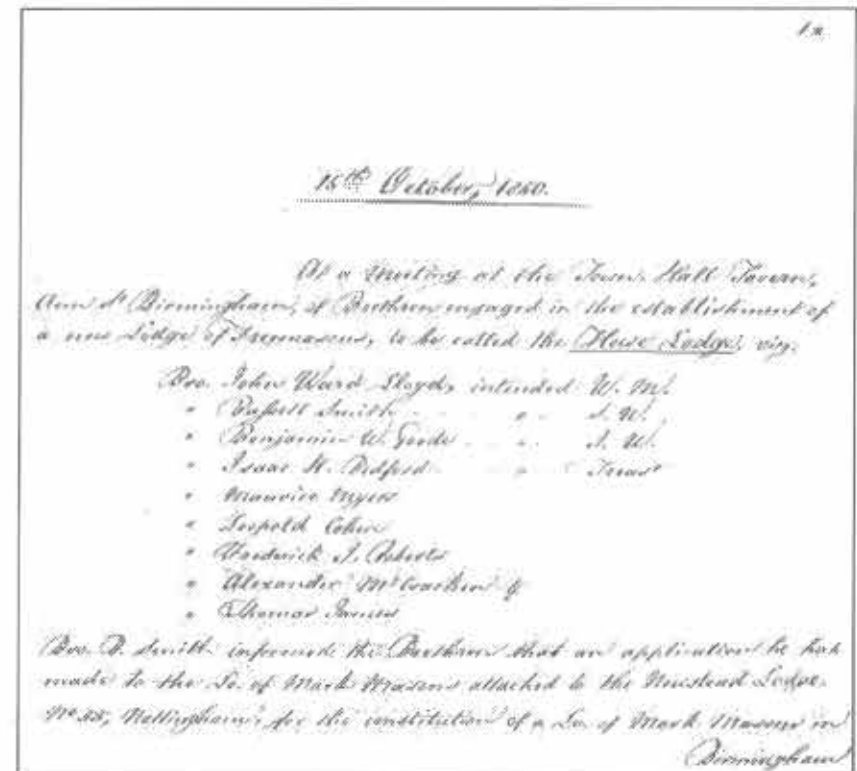 15th October, 1850.
At a Meeting at the Town Hall Tavern,
Ann St Birmingham, of Brethren engaged in the establishment of
a new Lodge of Freemasons, to be called the Howe Lodge, viz.
Bro. John Ward Lloyd, intended W. M.
" Smith " S. W.
" Benjamin W. Goode " J. W.
" Isaac H. Bedford " Treasr
" Maurice Myers
" Leopold Cohen
" Frederick J. Roberts
" Alexander McCracken &
" Thomas James
Bro. Smith informed the Brethren that an application he had
made to the Lo. of Mark Masons attached to the Newstead Lodge
No 55, Nottingham, for the constitution of a Lo. of Mark Masons in
Birmingham